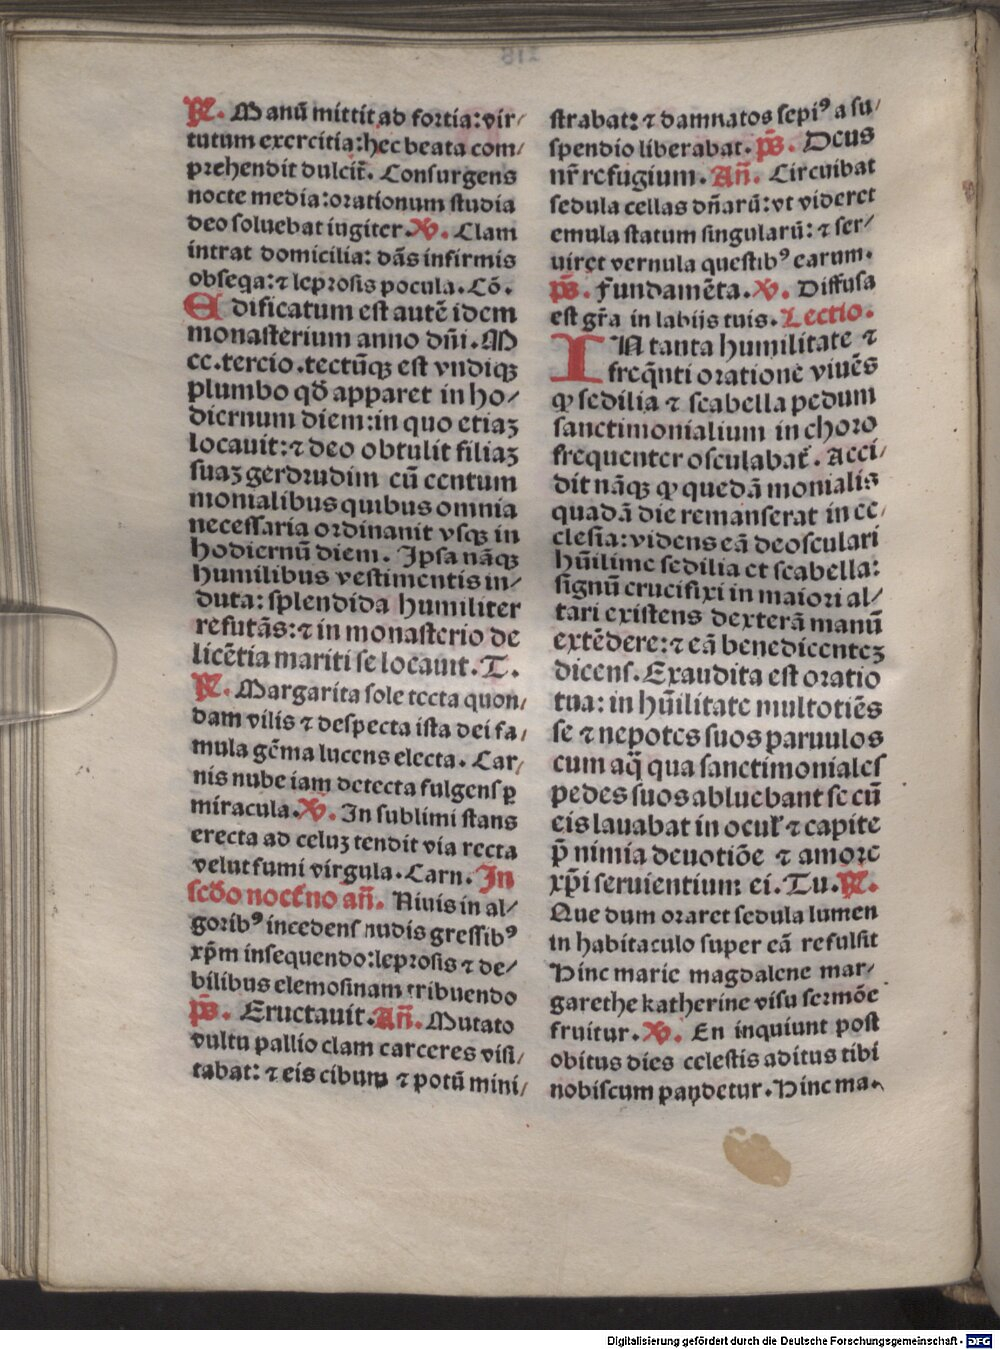 ℟. Manū mittit ad fortia: vir⸗
tutum exercitia: hec beata com⸗
prehendit dulcit̄. Consurgens
nocte media: orationum studia
deo soluebat iugiter. ℣. Clam
intrat domicilia: dās infirmis
obseqa: ⁊ leprosis pocula. Cō.
Edificatum est autē idem
monasterium anno dn̄i. M
cc. tercio. tectūqꝫ est vndiqꝫ
plumbo qd̄ apparet in ho⸗
diernum diem: in quo etiaꝫ
locauit: ⁊ deo obtulit filiaꝫ
suaꝫ gerdrudim cū centum
monialibus quibus omnia
necessaria ordinauit vsqꝫ in
hodiernū diem. Ipsa nāqꝫ
humilibus vestimentis in⸗
duta: splendida humiliter
refutās: ⁊ in monasterio de
licētia mariti se locauit. T.
℟. Margarita sole tecta quon⸗
dam vilis ⁊ despecta ista dei fa⸗
mula gēma lucens electa. Car⸗
nis nube iam detecta fulgens ꝑ
miracula. ℣. In sublimi stans
erecta ad celuꝫ tendit via recta
velut fumi virgula. Carn. In
scd̄o noct̄no an̄. Niuis in al⸗
goribꝰ incedens nudis gressibꝰ
xp̄m insequendo: leprosis ⁊ de⸗
bilibus elemosinam tribuendo
ps̄. Eructauit. An̄. Mutato
vultu pallio clam carceres visi⸗
tabat: ⁊ eis cibum ⁊ potū mini⸗
strabat: ⁊ damnatos sepiꝰ a su⸗
spendio liberabat. ps̄. Deus
nr̄ refugium. An̄. Circuibat
sedula cellas dn̄arū: vt videret
emula statum singularū: ⁊ ser⸗
uiret vernula questibꝰ earum.
ps̄. Fundamēta. ℣. Diffusa
est gr̄a in labijs tuis. Lectio.
IN tanta humilitate ⁊
freq̄nti oratione viuēs
ꝙ sedilia ⁊ scabella pedum
sanctimonialium in choro
frequenter osculabat̄. Acci⸗
dit nāqꝫ ꝙ quedā monialis
quadā die remanserat in ec⸗
clesia: videns eā deosculari
hūilime sedilia et scabella:
signū crucifixi in maiori al⸗
tari existens dexterā manū
extēdere: ⁊ eā benedicenteꝫ
dicens. Exaudita est oratio
tua: in hūilitate multotiēs
se ⁊ nepotes suos paruulos
cum aq̄ qua sanctimoniales
pedes suos abluebant se cū
eis lauabat in ocul̄ ⁊ capite
p̄ nimia deuotiōe ⁊ amore
xp̄i seruientium ei. Tu. ℟.
Que dum oraret sedula lumen
in habitaculo super eā refulsit
Hinc marie magdalene mar⸗
garethe katherine visu sermōe
fruitur. ℣. En inquiunt post
obitus dies celestis aditus tibi
nobiscum pandetur. Hinc ma.
Digitalisierung gefördert durch die Deutsche Forschungsgemeinschaft - DFG